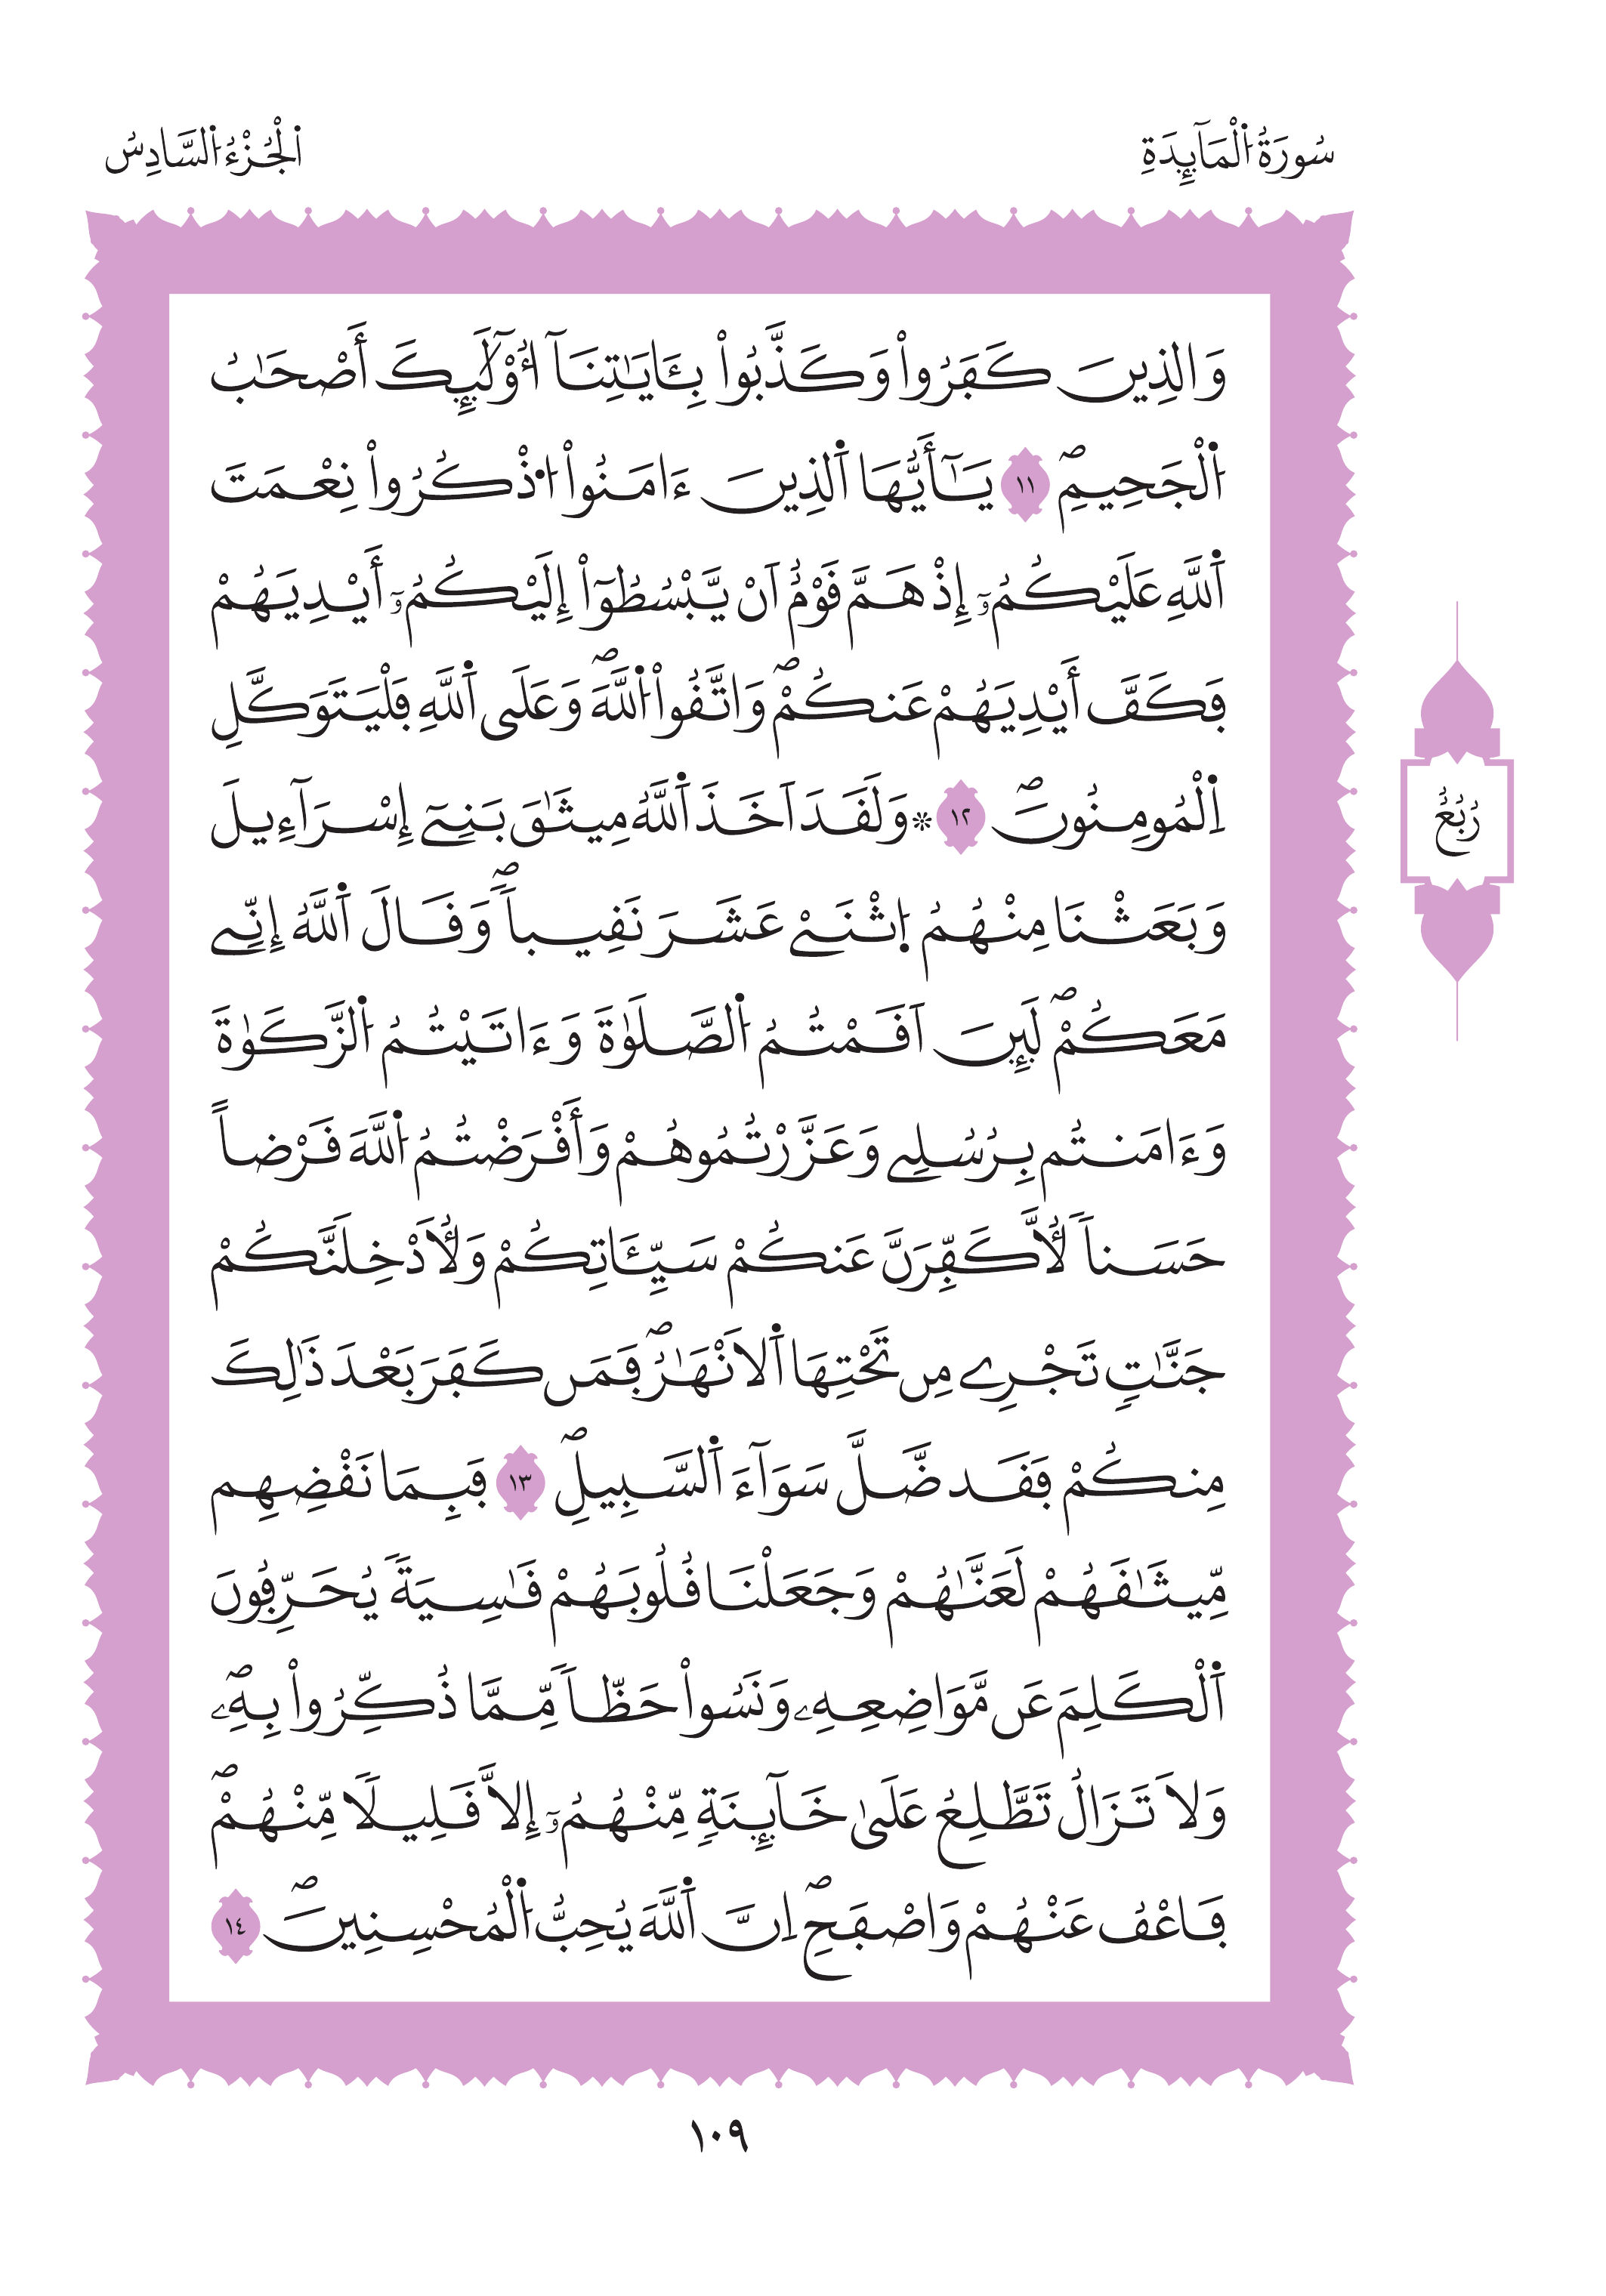 سُورَةُ اُ۬لْمَآئِدَةِ
اَ۬لْجُزْءُ اُ۬لسَّادِسُ
وَالذِينَ كَفَرُواْ وَكَذَّبُواْ بِـَٔايَٰتِنَآ أُوْلَٰٓئِكَ أَصْحَٰبُ
اُ۬لْجَحِيمِۖ ١١ يَٰٓأَيُّهَا اَ۬لذِينَ ءَامَنُواْ اُ۟ذْكُرُواْ نِعْمَتَ
اَ۬للَّهِ عَلَيْكُمُۥٓ إِذْ هَمَّ قَوْمٌ اَنْ يَّبْسُطُوٓاْ إِلَيْكُمُۥٓ أَيْدِيَهُمْ
فَكَفَّ أَيْدِيَهُمْ عَنكُمْۖ وَاتَّقُواْ اُ۬للَّهَۖ وَعَلَى اَ۬للَّهِ فَلْيَتَوَكَّلِ
اِ۬لْمُومِنُونَۖ ١٢ ۞ وَلَقَدَ اَخَذَ اَ۬للَّهُ مِيثَٰقَ بَنِےٓ إِسْرَآءِيلَ
وَبَعَثْنَا مِنْهُمُ اُ۪ثْنَےْ عَشَرَ نَقِيباٗۖ وَقَالَ اَ۬للَّهُ إِنِّے
مَعَكُمْۖ لَئِنَ اَقَمْتُمُ اُ۬لصَّلَوٰةَ وَءَاتَيْتُمُ اُ۬لزَّكَوٰةَ
وَءَامَنتُم بِرُسُلِے وَعَزَّرْتُمُوهُمْ وَأَقْرَضْتُمُ اُ۬للَّهَ قَرْضاً
حَسَناٗ لَّأُكَفِّرَنَّ عَنكُمْ سَيِّـَٔاتِكُمْ وَلَأُدْخِلَنَّكُمْ
جَنَّٰتٖ تَجْرِے مِن تَحْتِهَا اَ۬لَانْهَٰرُۖ فَمَن كَفَرَ بَعْدَ ذَٰلِكَ
مِنكُمْ فَقَد ضَّلَّ سَوَآءَ اَ۬لسَّبِيلِۖ ١٣ فَبِمَا نَقْضِهِم
مِّيثَٰقَهُمْ لَعَنَّٰهُمْ وَجَعَلْنَا قُلُوبَهُمْ قَٰسِيَةٗ يُحَرِّفُونَ
اَ۬لْكَلِمَ عَن مَّوَاضِعِهِۦ وَنَسُواْ حَظّاٗ مِّمَّا ذُكِّرُواْ بِهِۦۖ
وَلَا تَزَالُ تَطَّلِعُ عَلَىٰ خَآئِنَةٖ مِّنْهُمُۥٓ إِلَّا قَلِيلٗا مِّنْهُمْۖ
فَاعْفُ عَنْهُمْ وَاصْفَحِۖ اِنَّ اَ۬للَّهَ يُحِبُّ اُ۬لْمُحْسِنِينَۖ ١٤
رُبُعُ
١٠٩